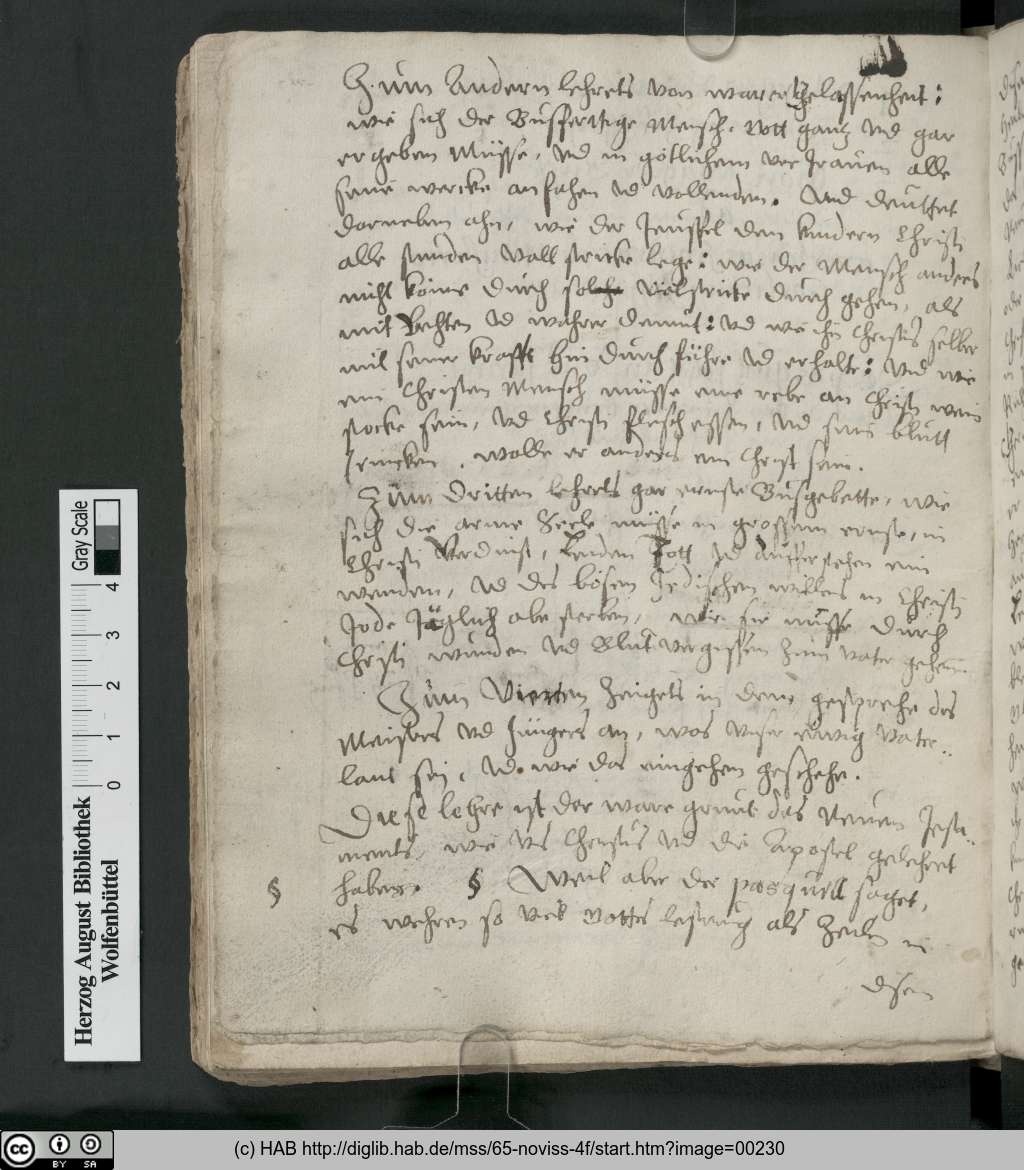 Zum Andern lehrets von warer gelassenheit:
wie sich der Busfertige Mensch, Gott gantz vnd gar
ergeben Müsse, vnd in götlichem vertrauen alle
seine wercke anfahen vnd vollenden. Vnd deuttet
darneben ahn, wie der Teuffel den kindern Christi
alle stunden voll stricke lege: wie der Mensch anders
nicht könne durch viel stricke durch gehen, als
mit rechten vnd wahrer demut: vnd wie ihn Christus selber
mit seiner krafft hin durch führe vnd erhalte: Vnd wie
ein Christen Mensch müsse eine rebe an Christi wein
stocke sein, vnd Christi fleisch essen, vnd sein blutt
trincken, wolle er anders ein Christ sein.
Zum Dritten lehrets gar ernste Busgebette, wie
sich die arme Seele müsse in grossem ernste, in
Christi Verdinst, Leiden Tott vnd aufferstehen ein
wenden, vnd des bösen Irdischen willens in Christi
Tode Täglich abe sterben, wie sie müsse durch
Christi wunden vnd Blutvergissen zum vater gehen.
Zum Vierten Zeigets in dem gespreche des
Meisters vnd Jüngers an, was vnser ewig Vater
lant sei, vnd wie das eingehen geschehe.
Diese lehre ist der ware grunt des Neuen Testa
ments, wie vns Christus vnd die Apostel gelehret
§ haben. § Weil aber der pasquill saget,
es wehren so viel Gottes lesterung als Zeilen in
disem
Gray Scale
0 1 2 3 4
Herzog August Bibliothek
Wolfenbüttel
cc BY SA
(c) HAB http://diglib.hab.de/mss/65-noviss-4f/start.htm?image=00230